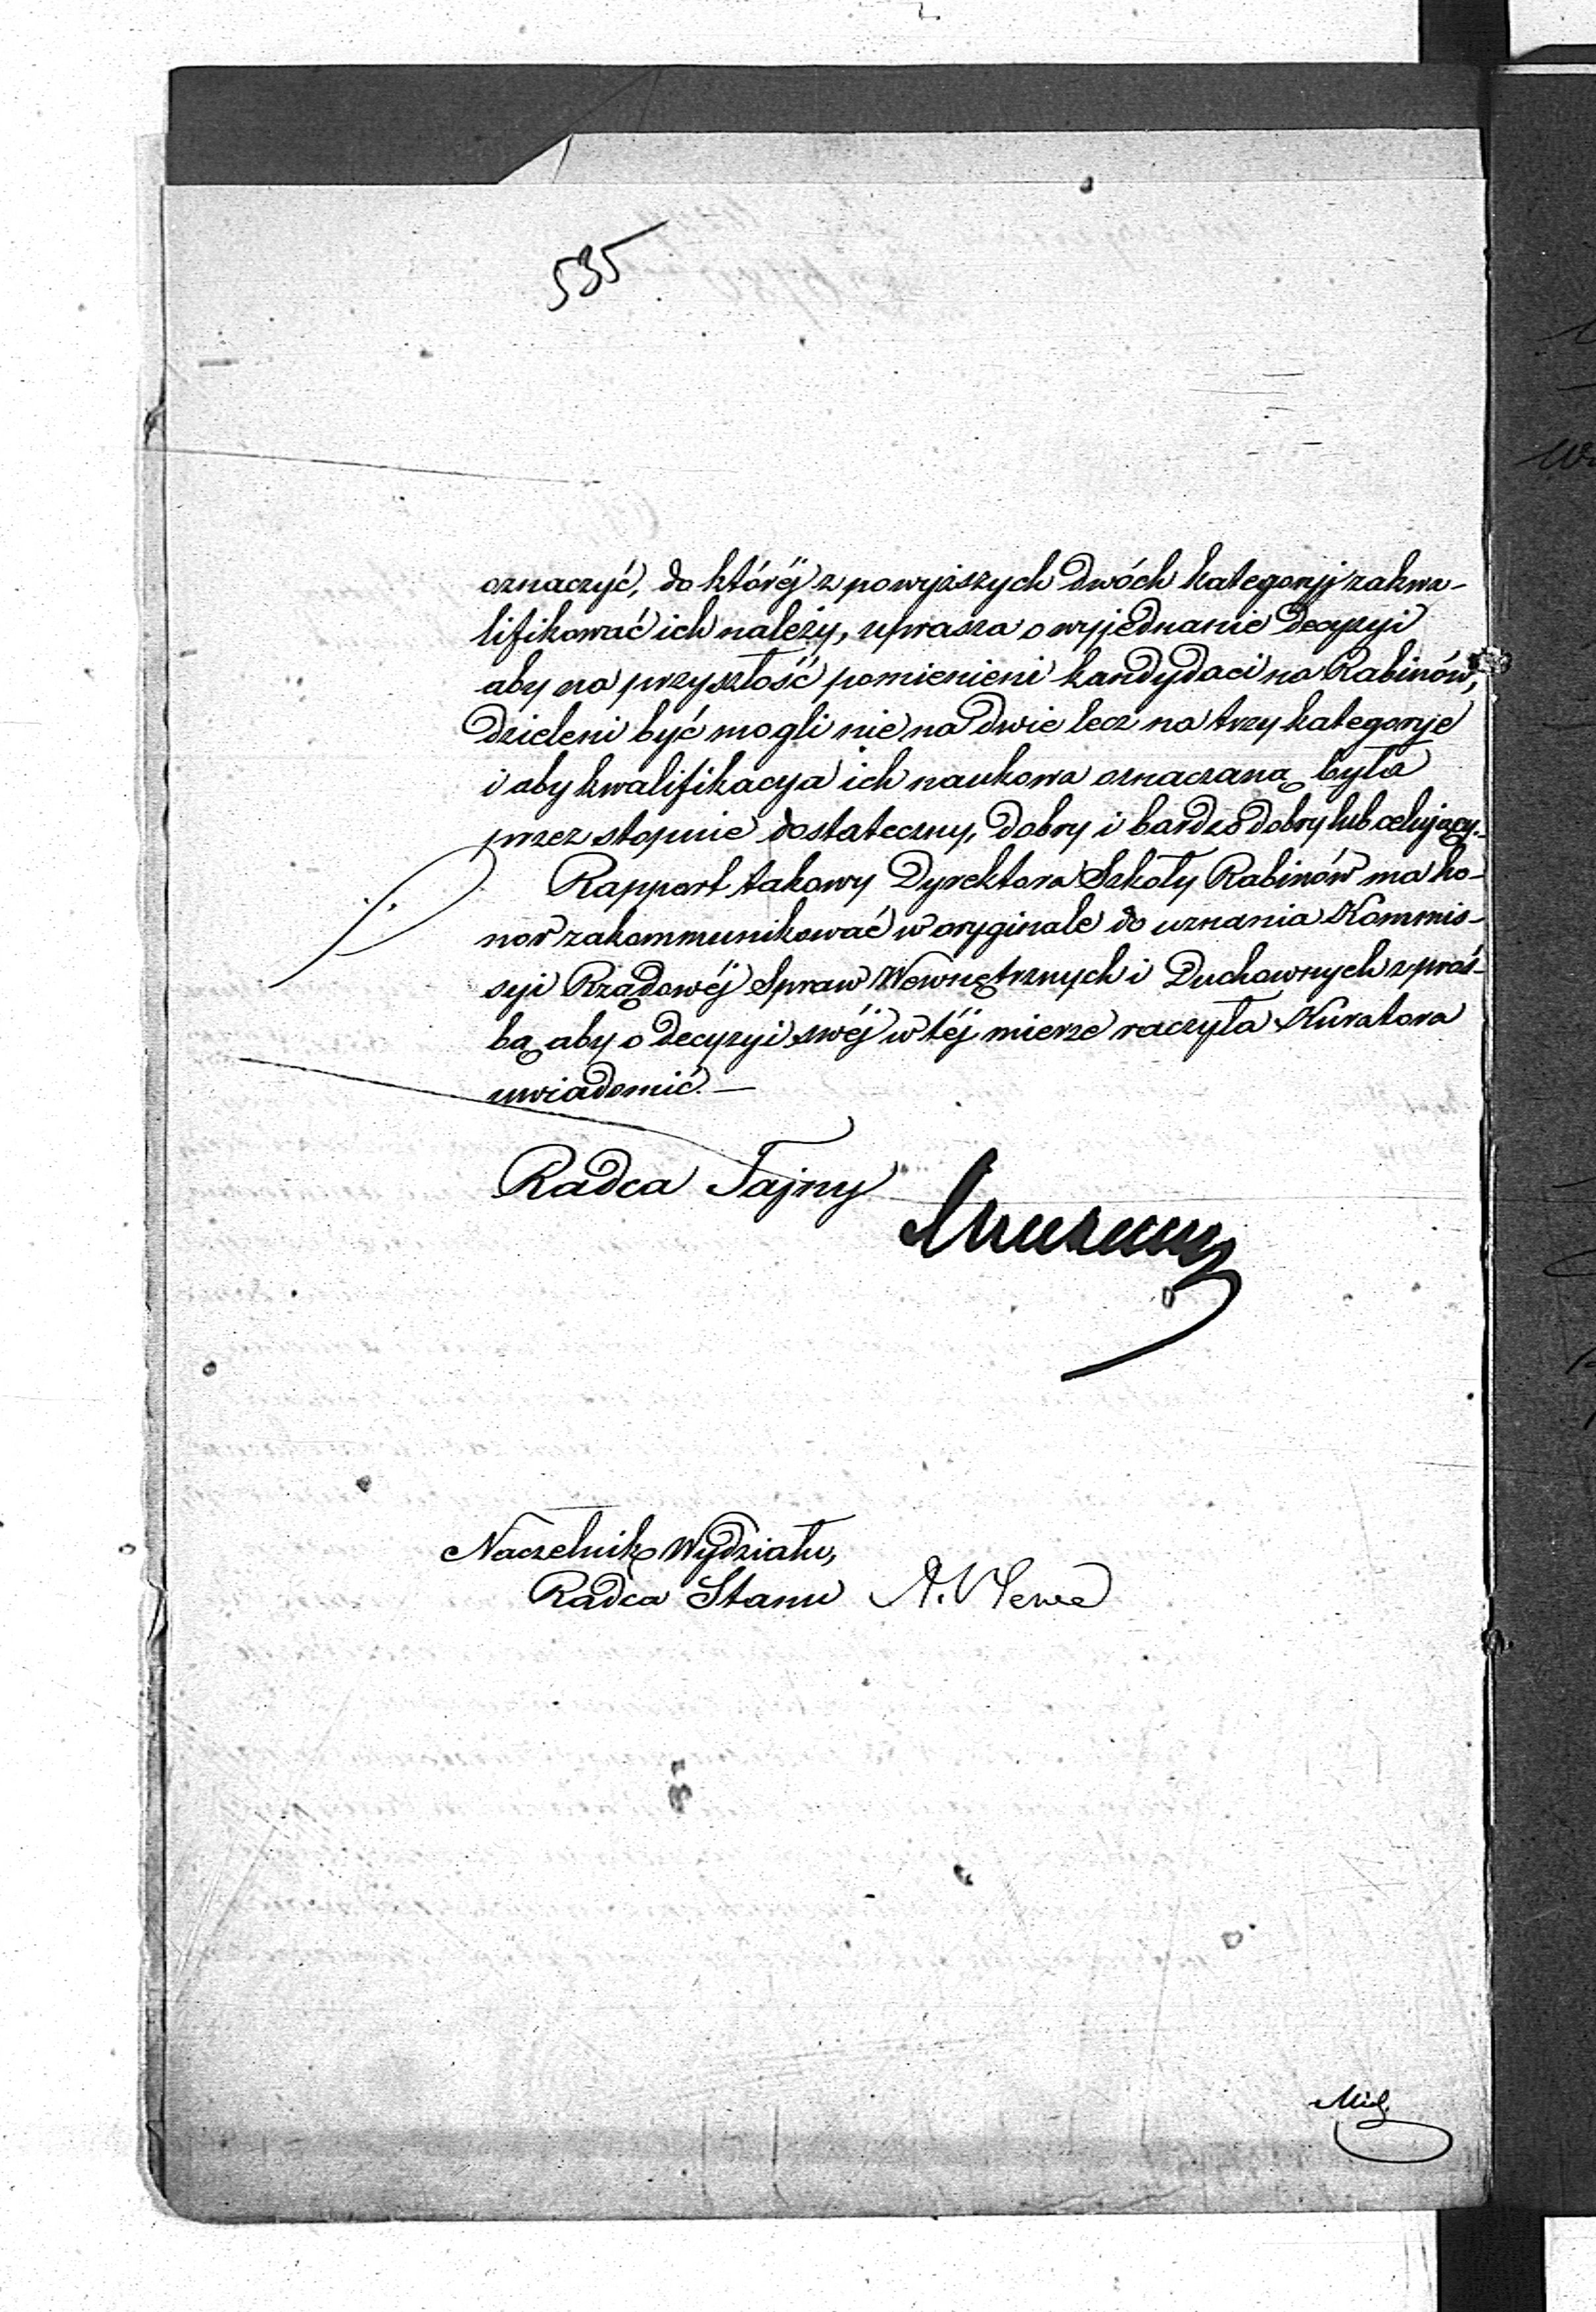 535
oznaczyć, do któréj z powyższych dwóch kategoryj zakwa-
lifikować ich należy, uprasza o wyjednanie decyzyi
aby na przyszłość pomienieni kandydaci na Rabinów,
dzieleni być mogli nie na dwie lecz na trzy kategorye
i aby kwalifikacya ich naukowa oznaczaną była
przez stopnie dostateczny, dobry i bardzo dobry lub celujący.
Rapport takowy Dyrektora Szkoły Rabinów ma ho-
nor zakommunikować w oryginale do uznania Kommis-
syi Rządowéj Spraw Wewnętrznych i Duchownych z proś-
bą aby o decyzyi swéj w téj mierze raczyła Kuratora
uwiadomić. —
Radca Tajny
Naczelnik Wydziału,
Radca Stanu